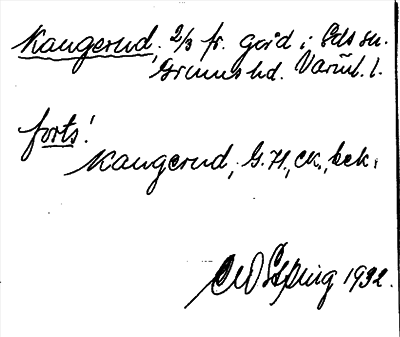 Kangerud, 2/3 fr. gård i Eds sn.
Grums hd. Värml. l.
forts!
Kangerud, G. H., ck., bek.
1932.